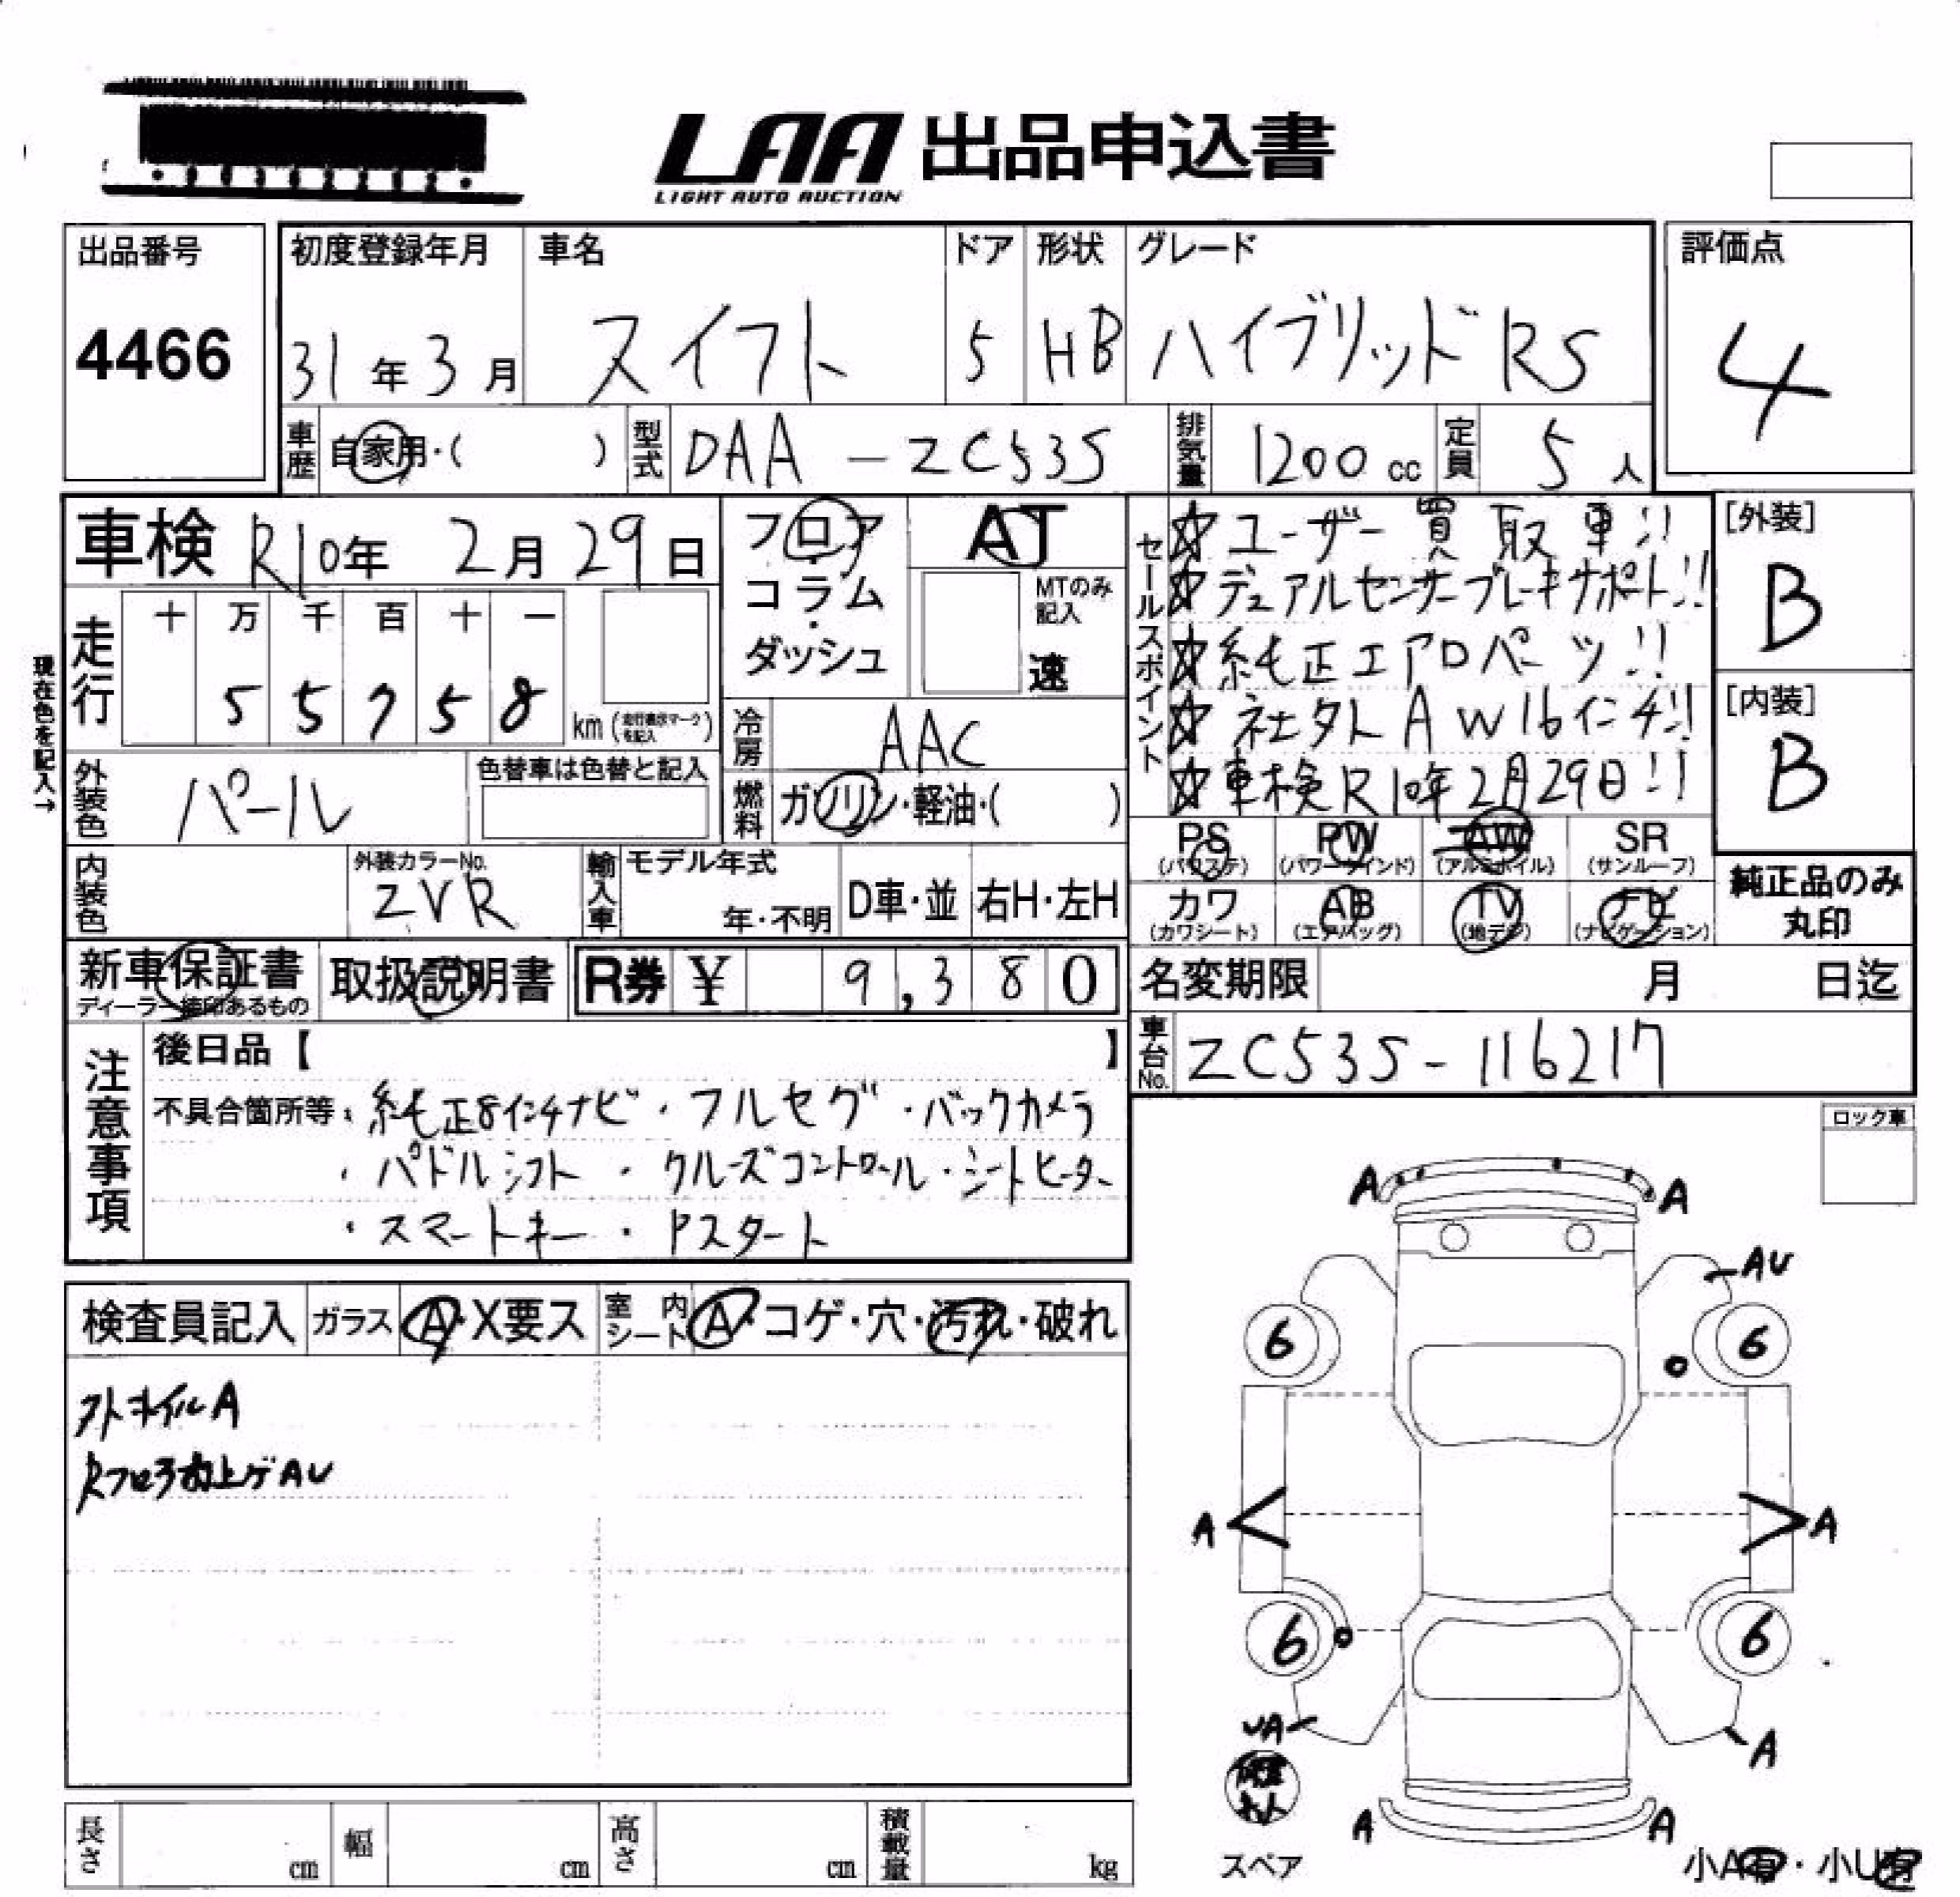 LAA 出品申込書
LIGHT AUTO AUCTION
出品番号
4466
初度登録年月
31年3月
車名
スイフト
ドア
5
形状
HB
グレード
ハイブリッドRS
評価点
4
車歴
自家用・( )
型式
DAA-ZC53S
排気量
1200cc
定員
5人
車検 R10年 2月 29日
走行
十 万 千 百 十 一
5 5 7 5 8
km(走行表示マークを記入)
現在色を記入→
フロア
コラム
ダッシュ
AT
MTのみ記入
速
冷房
AAC
燃料
ガソリン・軽油・( )
外装色
パール
色替車は色替と記入
内装色
外装カラーNo.
ZVR
輸入車
モデル年式
年・不明
D車・並
右H・左H
セールスポイント
☆ユーザー買取車!!
☆デュアルセンサーブレーキサポート!!
☆純正エアロパーツ!!
☆社外AW16インチ!!
☆車検R10年2月29日!!
[外装]
B
[内装]
B
PS (パワステ)
PW (パワーウインド)
AW (アルミホイル)
SR (サンルーフ)
カワ (カワシート)
AB (エアバッグ)
TV (地デジ)
ナビ (ナビゲーション)
純正品のみ
丸印
新車保証書
ディーラー捺印あるもの
取扱説明書
R券 ¥ 9,380
名変期限 月 日迄
車台No.
ZC53S-116217
注意事項
後日品【 】
不具合箇所等・純正8インチナビ・フルセグ・バックカメラ
・パドルシフト・クルーズコントロール・シートヒーター
・スマートキー・Pスタート
ロック車
検査員記入
ガラス
A・X要ス
室内シート
A・コゲ・穴・汚れ・破れ
外ホイルA
A A
AU
6 6
A A
6 6
UA
A
A A
スペア
小A有・小U有
長さ cm
幅 cm
高さ cm
積載量 kg